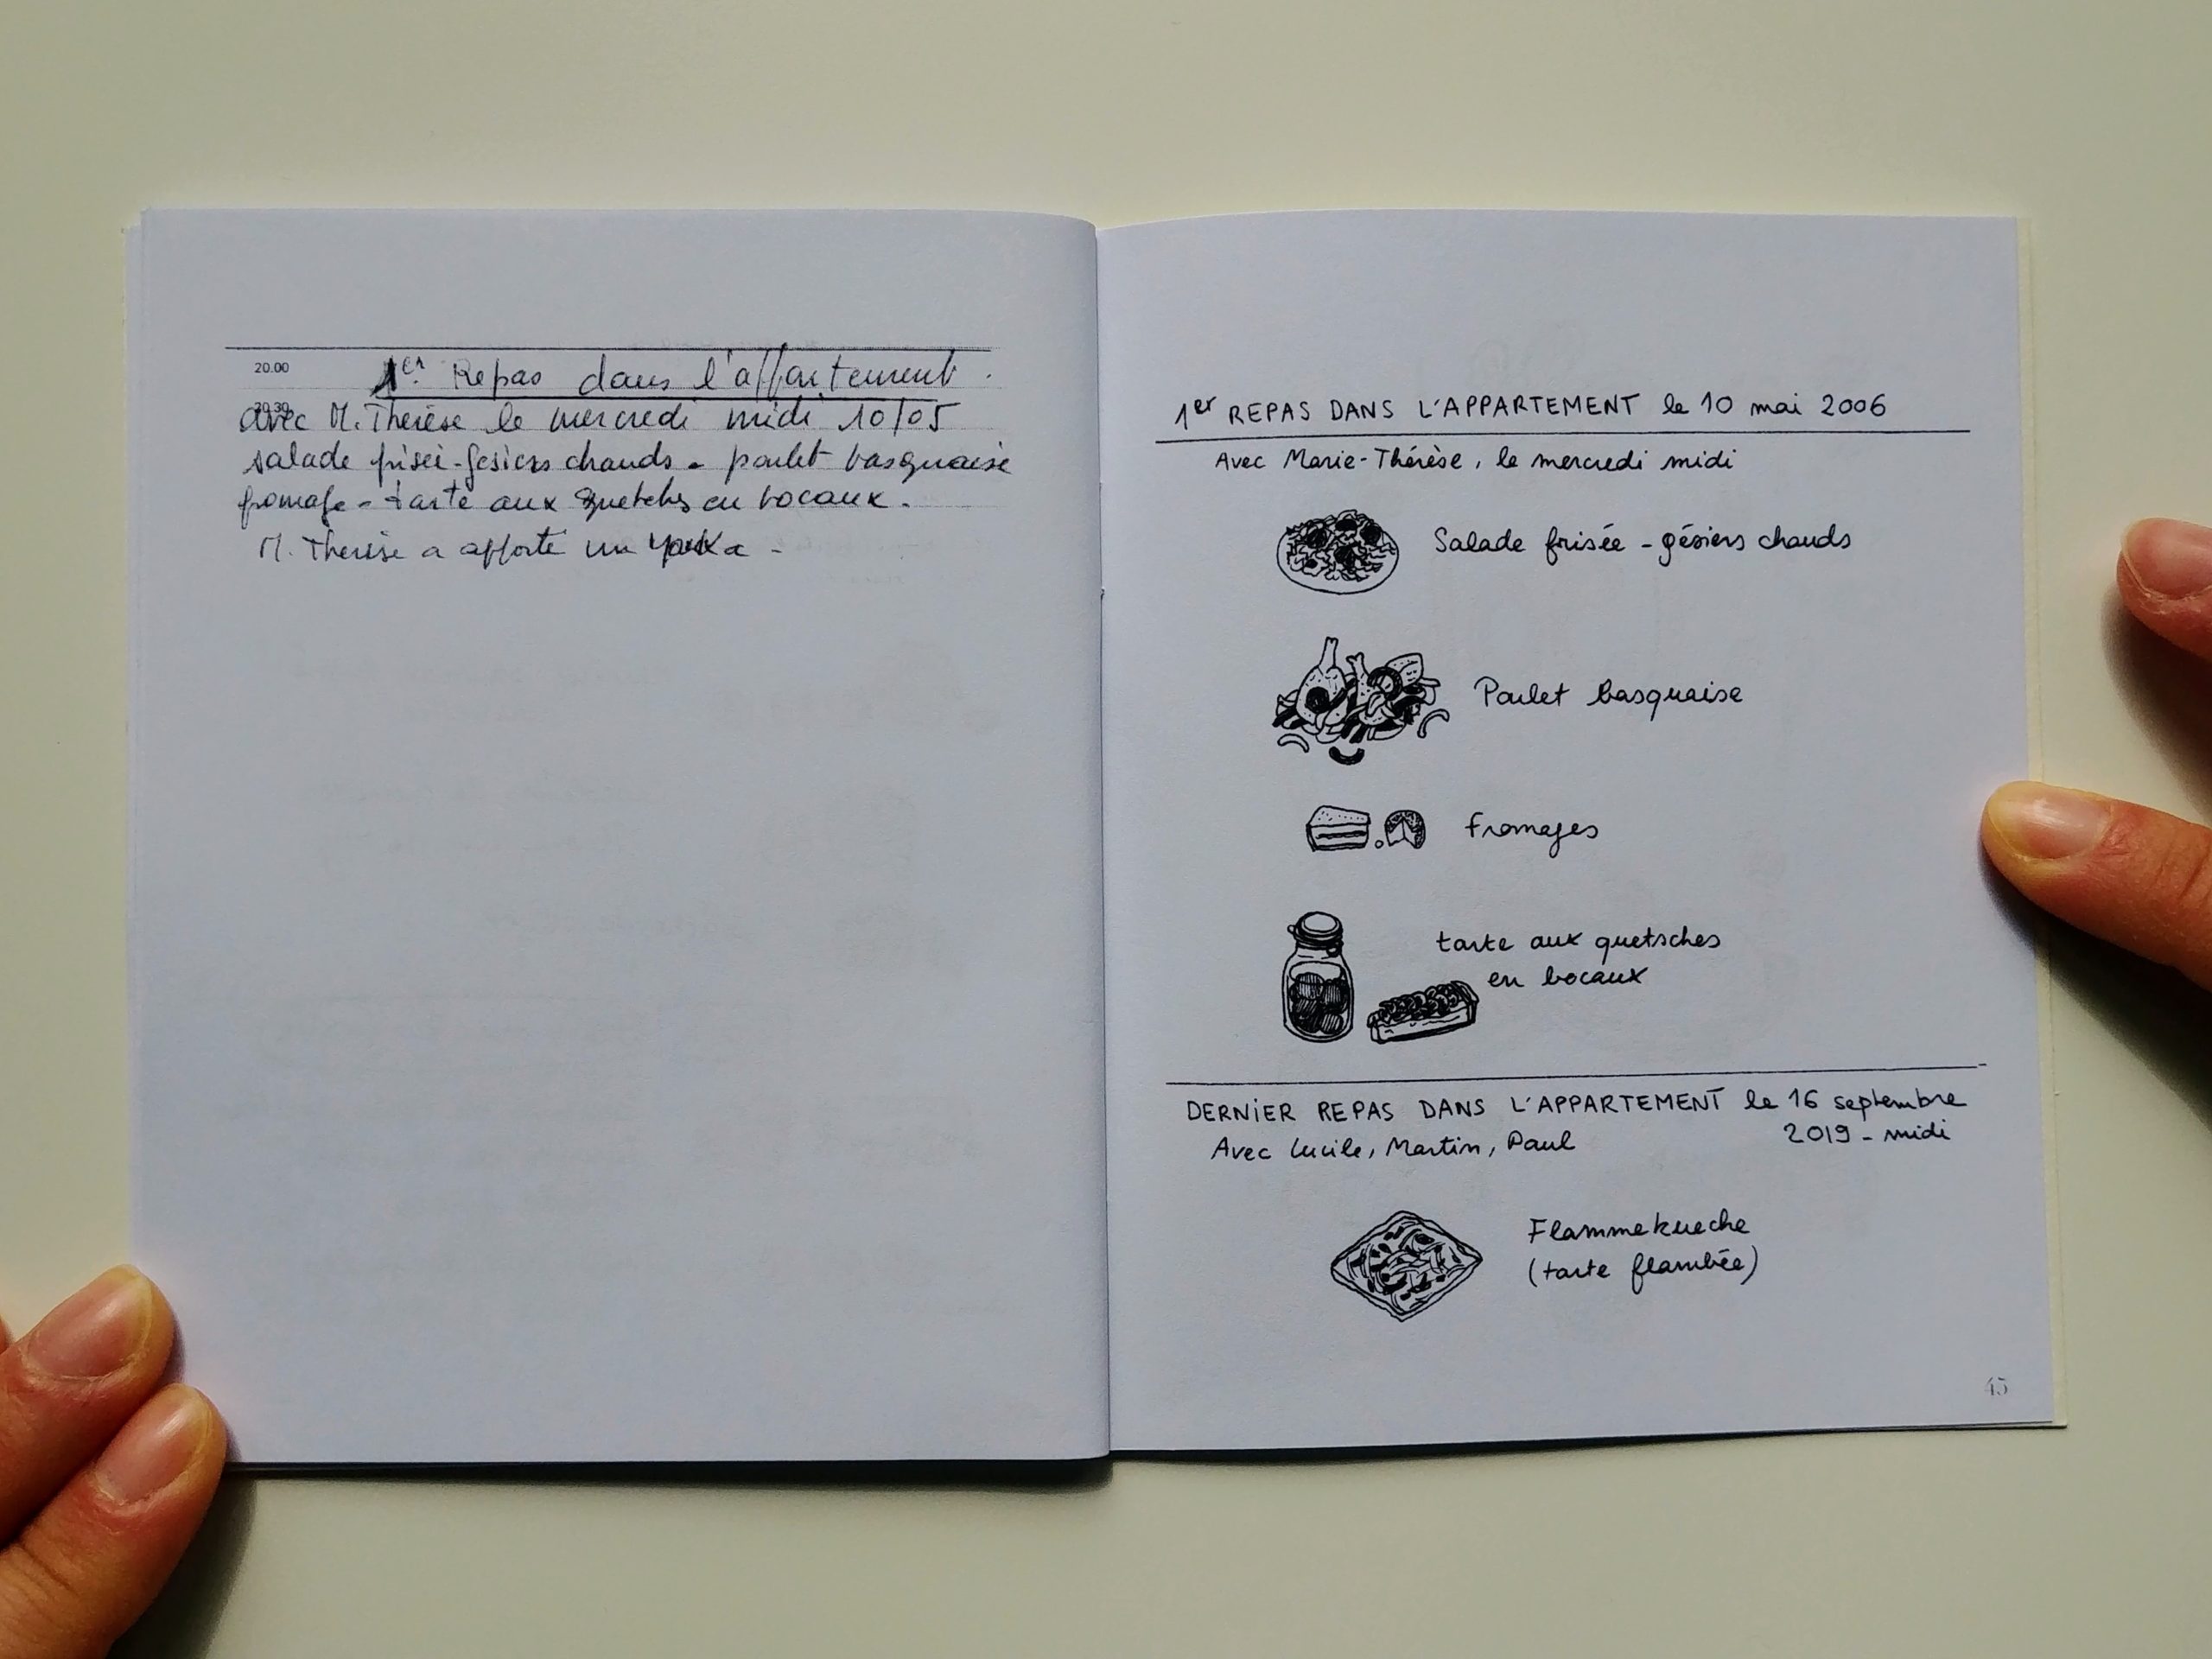 20.00
1er Repas dans l'appartement.
20.30
avec M. Thérèse le mercredi midi 10/05
salade frisée-gesiers chauds - poulet basquaise
fromage - tarte aux quetches en bocaux.
M. Thérèse a apporté un yucka -
1er REPAS DANS L'APPARTEMENT le 10 mai 2006
Avec Marie-Thérèse, le mercredi midi
Salade frisée - gésiers chauds
Poulet basquaise
fromages
tarte aux quetsches
en bocaux
DERNIER REPAS DANS L'APPARTEMENT le 16 septembre
2019 - midi
Avec Lucile, Martin, Paul
Flammekueche
(tarte flambée)
45